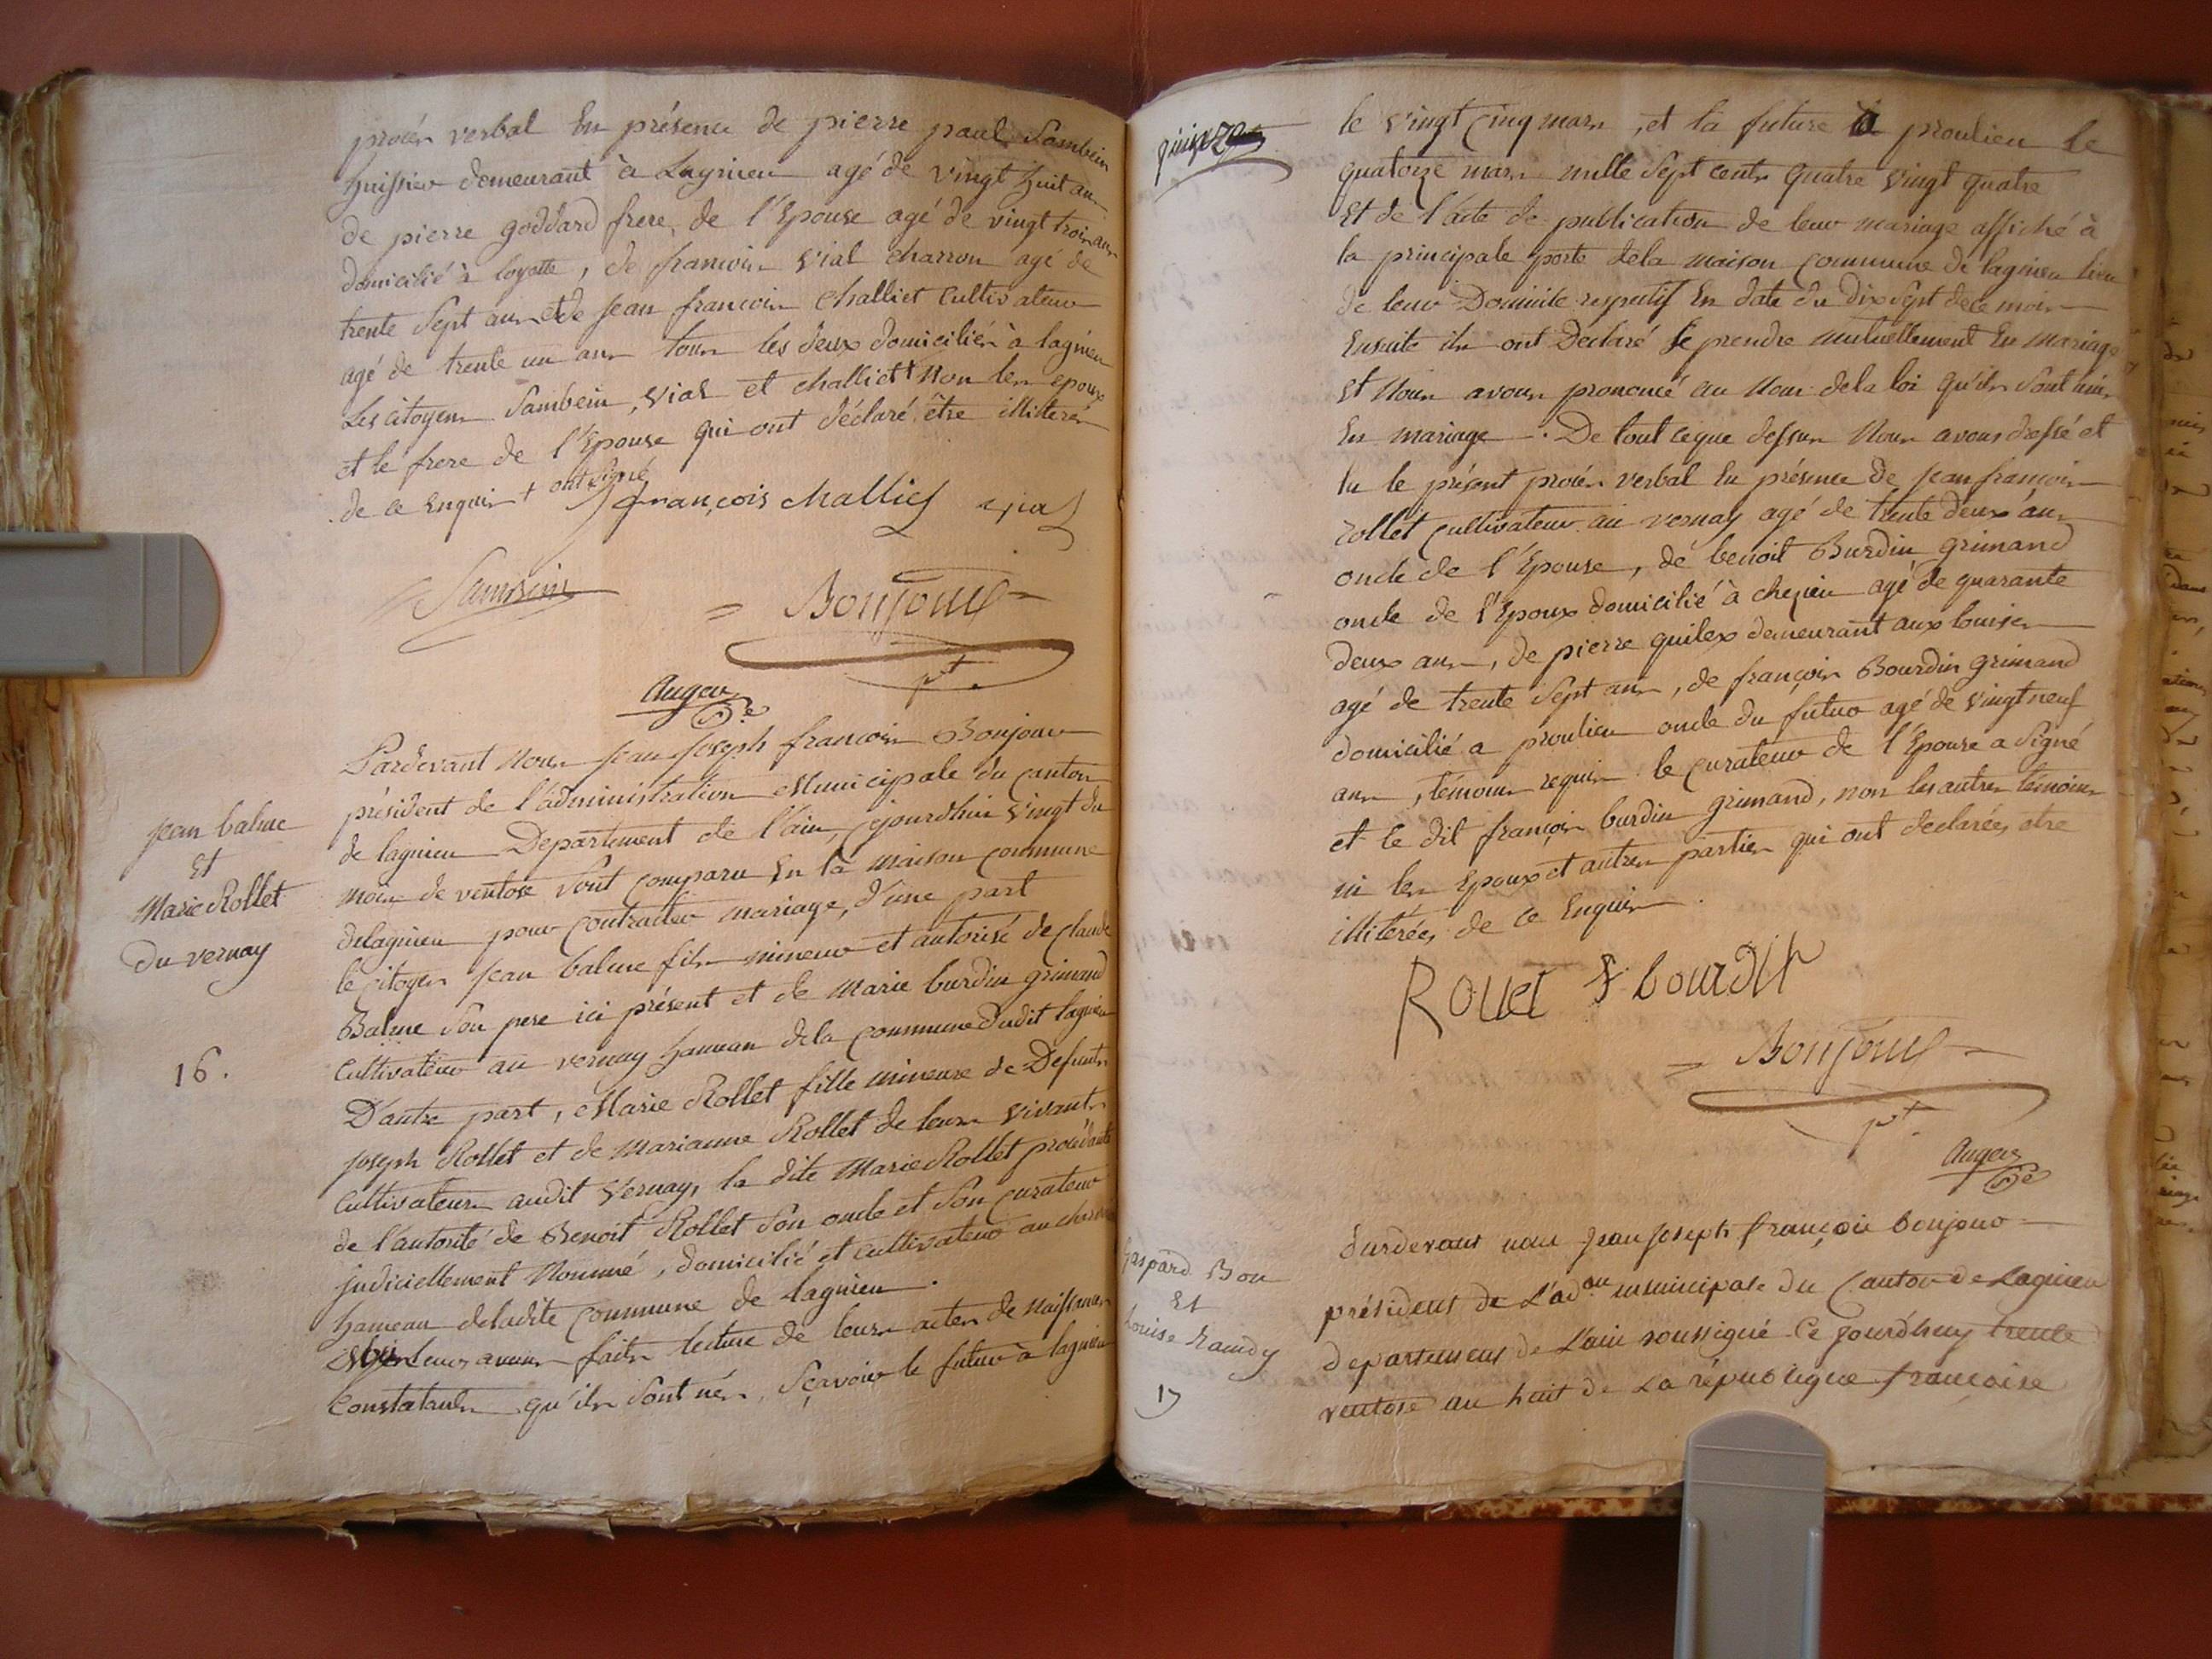 procès verbal En présence de pierre paul Sambein
huissier demeurant à Lagnieu agé de vingt huit ans
de pierre goddard frere de l'Epouse agé de vingt trois ans
domicilié à loyette, de francois Vial charron agé de
trente Sept ans et de Jean francois Challiet Cultivateur
agé de trente un ans tous les deux domiciliés à lagnieu
Les citoyens Sambein, Vial et challiet + Non les epoux
et le frere de l'Epouse qui ont déclaré être illiterés
de ce Enquis + ont signé
J françois challiet vial
Sambein
= Bonjour =
pt.
Auger
Sre
Pardevant Nous Jean Joseph francois Bonjour
président de l'administration Municipale du Canton
de lagnieu Departement de l'ain, cejourdhui Vingt du
mois de ventose Sont Comparu En la maison Commune
delagnieu pour Contracter mariage, d'une part
le Citoyen Jean balme fils mineur et autorisé de Claude
Balme Son pere ici présent et de Marie burdin grimand
Cultivateur au vernay hameau dela Commune dudit lagnieu
D'autre part, Marie Rollet fille mineure de Defunts
Joseph Rollet et de Marianne Rollet de leurs vivants
Cultivateurs audit Vernay, la dite Marie Rollet procédante
de l'autorité de Benoit Rollet Son oncle et Son Curateur
judiciellement Nommé, domicilié et Cultivateur au
hameau deladite Commune de lagnieu.
leur avons faits lecture de leurs actes de naissances
Constatants qu'ils Sont nés, Sçavoir le futur à lagnieu
Jean balme
Et
Marie Rollet
du vernay
16.
quinze
le Vingt Cinq mars, et la future à proulieu le
quatorze mars mille Sept cents quatre vingt quatre
Et de l'acte de publication de leur mariage affiché à
la principale porte dela maison Commune de lagnieu lieu
de leur Domicile respectif En date du Dix Sept de ce mois
Ensuite ils ont Declaré se prendre mutuellement En Mariage
Et Nous avons prononcé au Nom dela loi qu'ils Sont unis
En mariage. De tout ceque dessus Nous avons dressé et
lu le présent procès verbal En présence de Jean francois
rollet Cultivateur au vernay agé de trente deux ans
oncle de l'Epouse, de benoit Burdin grimand
oncle de l'Epoux domicilié à chezieu agé de quarante
deux ans, de pierre quilex demeurant aux buises
agé de trente Sept ans, de françois Bourdin grimand
domicilié a proulieu oncle du futur agé de Vingt neuf
ans, témoins requis le Curateur de l'Epouse a Signé
et le dit françois burdin grimand, non les autres temoins
ni les Epoux et autres parties qui ont declarées etre
illiterées de ce Enquis.
Rollet F bourdin
= Bonjour =
pt.
Auger
Sre
Pardevant nous Jean Joseph françois bonjour
président de L'adon municipale du Canton de Lagnieu
departement de L'ain soussigné Ce jourdhuy trente
ventose an huit de La république françoise
gaspard Bon
Et
Louise
17